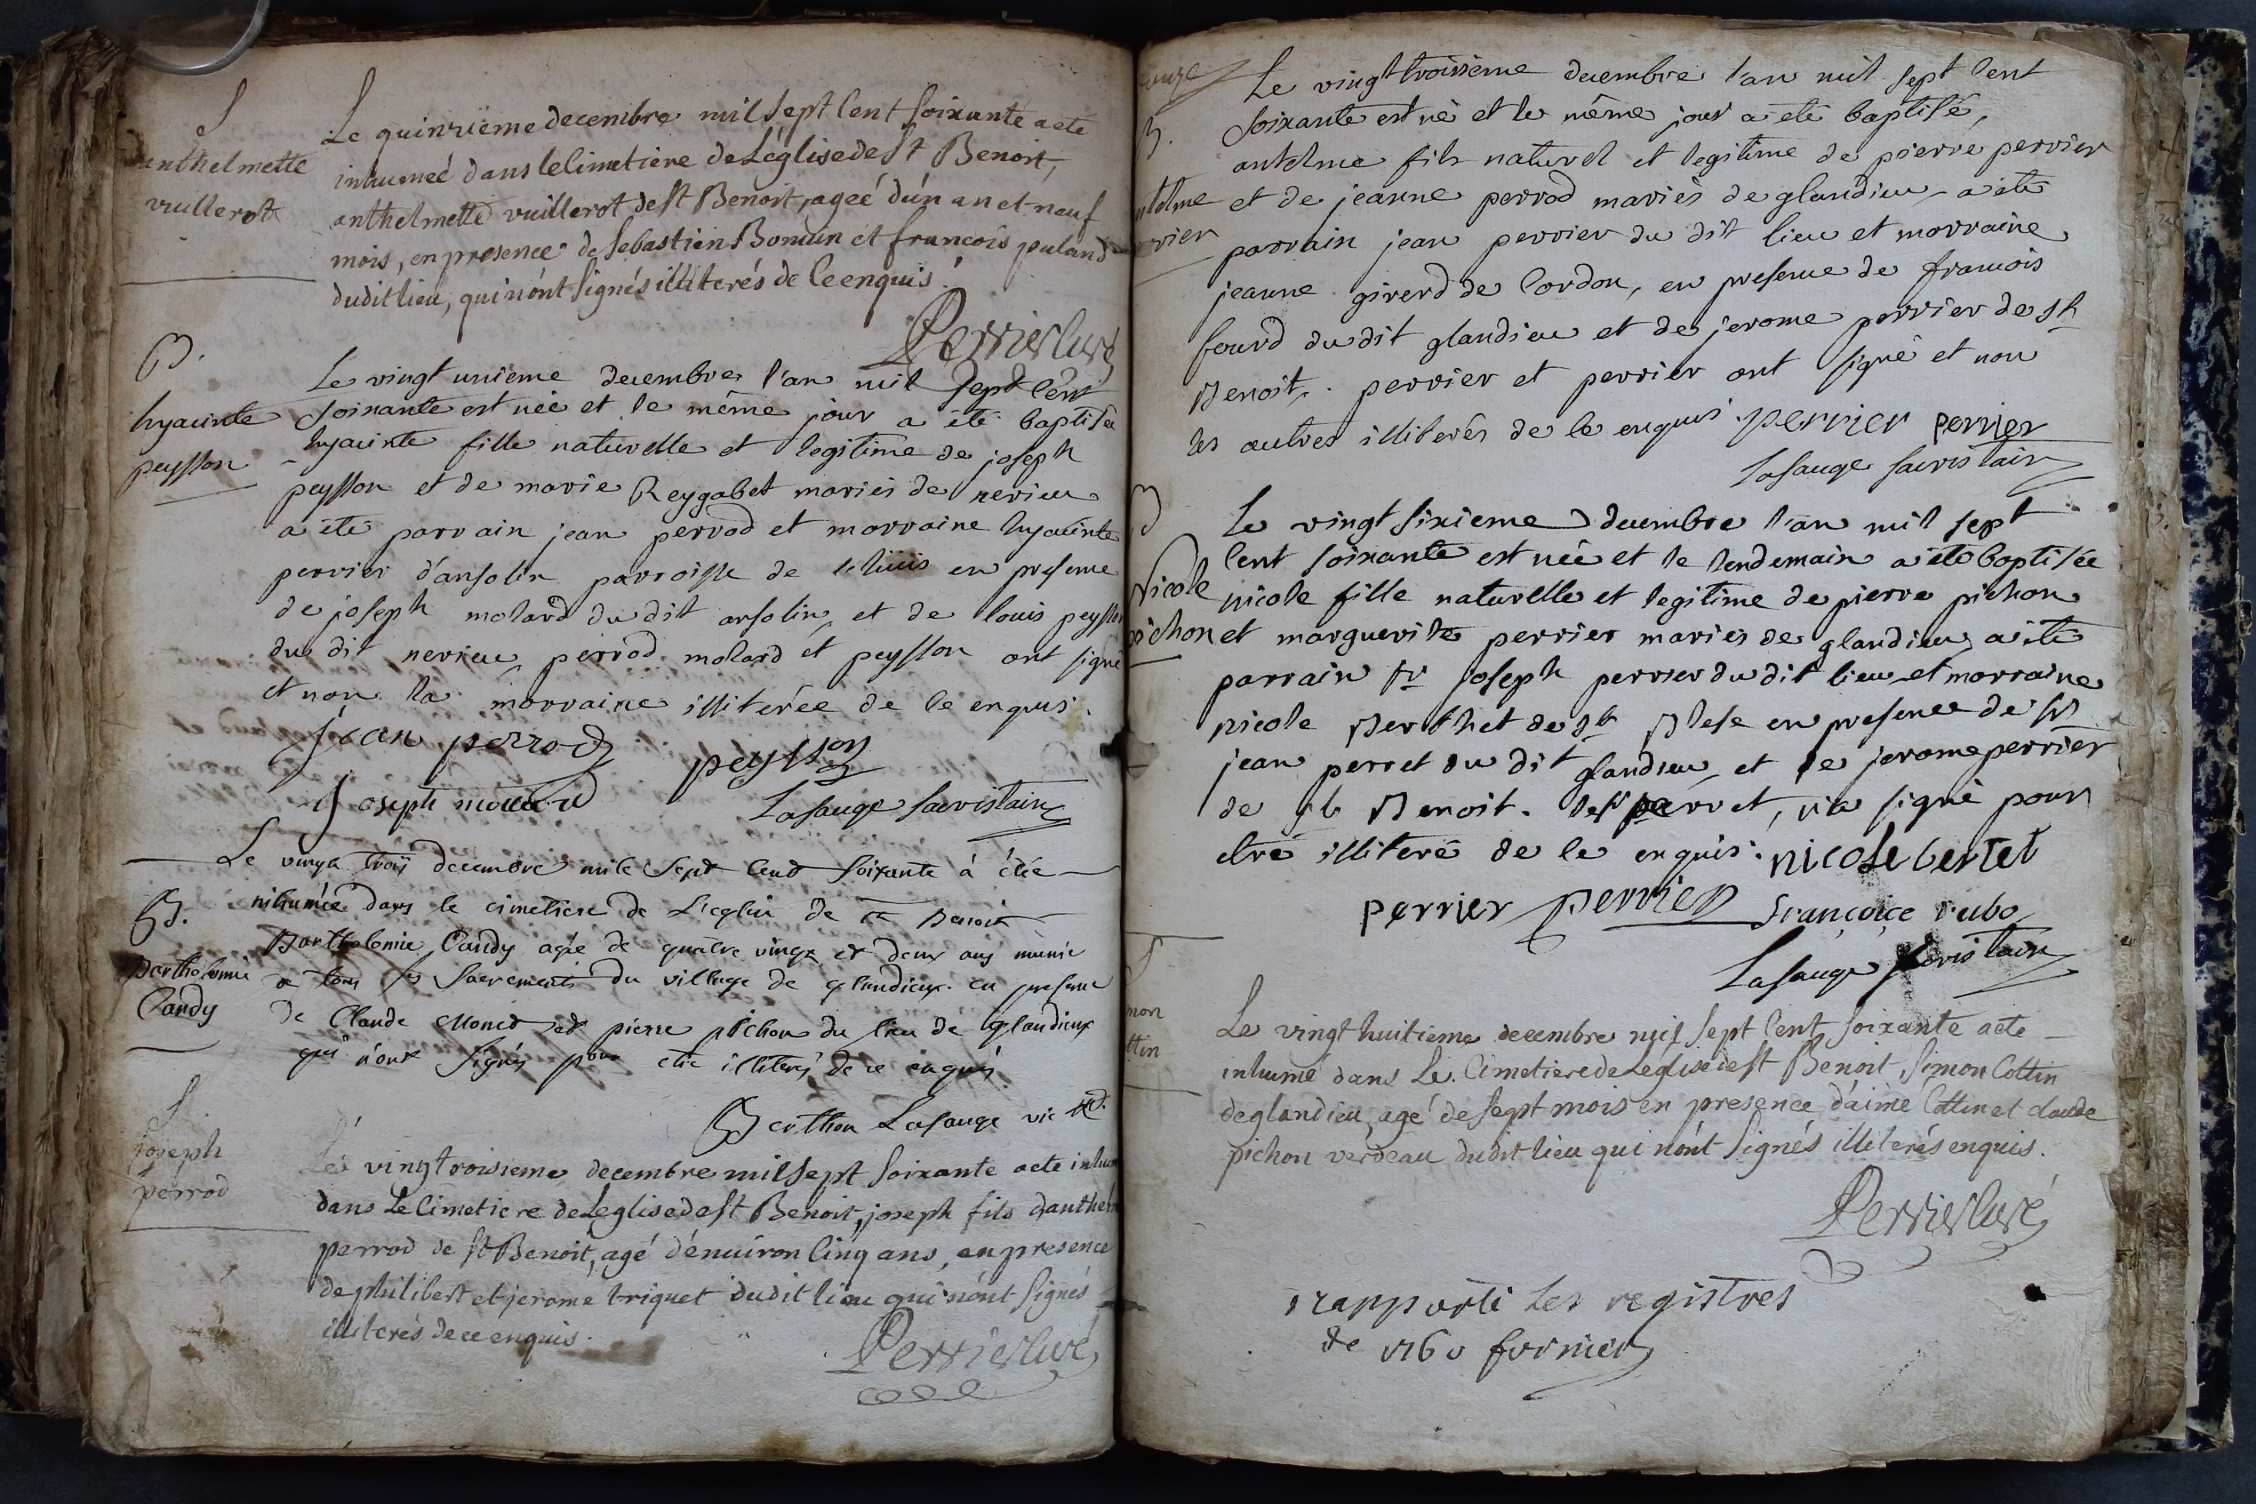 S
anthelmette
vuillerot
Le quinzième decembre mil sept Cent soixante a eté
inhumeé dans le Cimetière de Léglise de st Benoit,
anthelmette vuillerot de st Benoit, ageé d'ún an et neuf
mois, en presence de Sebastien Bondun et francois puland
dudit lieu, qui n'ónt signés illiterés de Ce enquis.
Perrier Curé
B.
hyacinte
peysson
Le vingt unieme decembre l'an mil sept Cent
soixante est neé et le même jour a été baptisée
hyacinte fille naturelle et legitime de joseph
peysson et de marie Reygabet mariés de nerieu
a été parrain jean perrod et marraine hyacinte
perrier d'ansolin parroisse de en presence
de joseph molard du dit ansolin, et de louis peysson
du dit nerieu, perrod molard et peysson ont signé
et non la marraine illiterée de ce enquis.
jean perrod peysson
joseph molard Lasauge sacristain
Le vingt trois decembre mile sept Cent soixante à étée
B.
inhumée dans le cimetiere de L'eglise de st Benoit
Bartholomie Candy agée de quatre vingt et deux ans munie
Bartholomie
Candy
de tous ses Sacrements du village de glandieux en presence
de Claude Monet et pierre pichon du lieu de glandieux
qui n'ont signés pour etre illiterés de ce enquis
Berthon Lasauge vic
S
joseph
perrod
Le vingtroisieme decembre mil sept soixante a eté inhumé
dans Le Cimetiere de Leglise de st Benoit, joseph fils d'anthelme
perrod de st Benoit, agé d'énuiron Cinq ans, en presence
de philibert et jerome triquet dudit lieu qui n'ónt signés
illiterés de ce enquis.
Perrier Curé
B.
antelme
perrier
Le vingt troisième decembre l'an mil sept Cent
soixante est né et le même jour a été baptisé,
antelme fils naturel et legitime de pierre perrier
et de jeanne perrod mariés de glandieu a été
parrain jean perrier du dit lieu et marraine
jeanne girerd de Cordon, en presence de francois
fourd du dit glandieu et de jerome perrier de st
Benoit. perrier et perrier ont signé et non
les autres illiterés de ce enquis. perrier perrier
Lasauge sacristain
B
Nicole
pichon
Le vingt sixieme decembre l'an mil sept
Cent soixante est neé et le lendemain a été baptisée
nicole fille naturelle et legitime de pierre pichon
et marguerite perrier mariés de glandieu a été
parrain sr joseph perrier du dit lieu et marraine
nicole Berthet de st Blese en presence de sr
jean perret du dit glandieu, et de jerome perrier
de st Benoit. le sr perret, n'a signé pour
etre illiteré de ce enquis. nicole bertet
perrier perrier françoise rubo
Lasauge sacristain
S
simon
Cottin
Le vingt huitieme decembre mil sept Cent soixante a eté
inhumé dans Le Cimetiere de Léglise de st Benoit, simon Cottin
de glandieu, agé de sept mois en presence d'aimé Cottin et claude
pichon verdeau dudit lieu qui n'ónt signés illiterés enquis.
Perrier Curé
rapporté les registres
de 1760 fornier